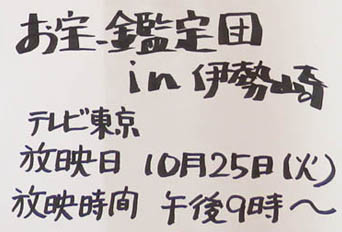 お宝鑑定団
in 伊勢崎
テレビ東京
放映日 10月25日(火)
放映時間 午後9時〜